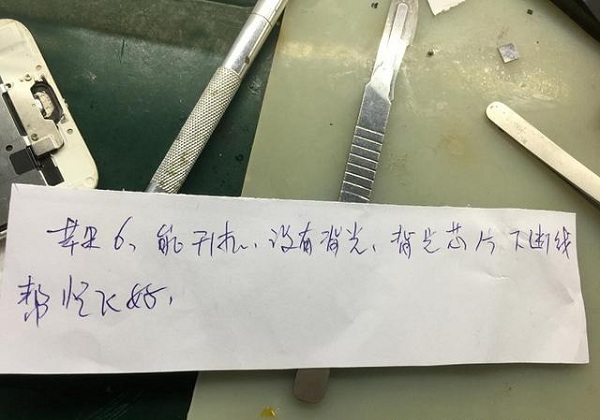 苹果6、能开机、没有背光、背光芯片下断线
帮忙飞好,